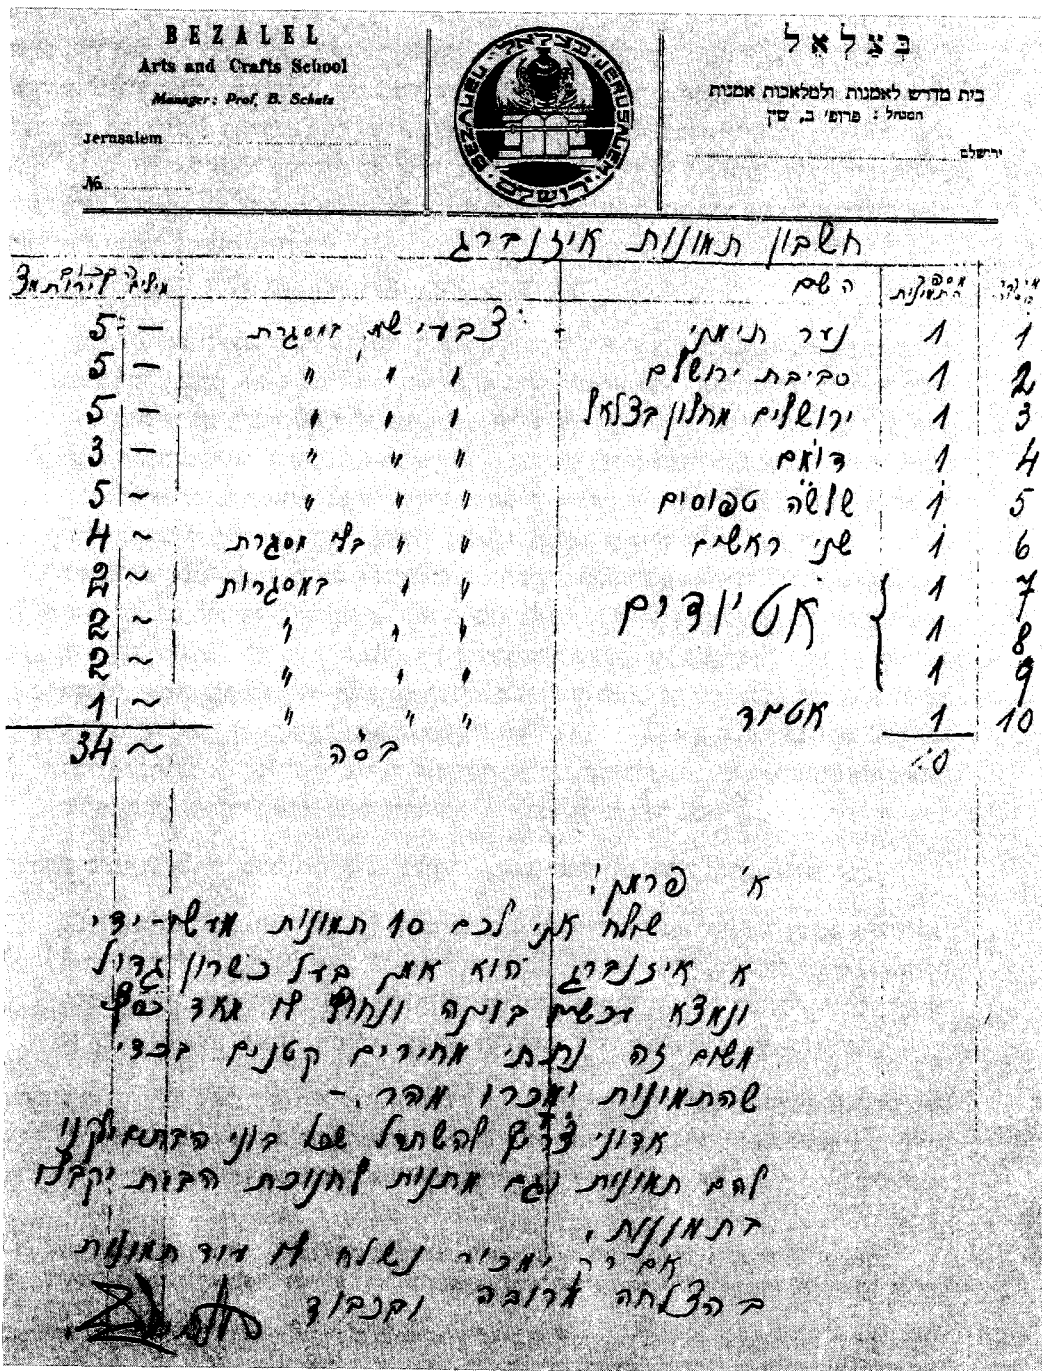 BEZALEL
Arts and Crafts School
Manager: Prof. B. Schatz
Jerusalem
No
BEZALEL JERUSALEM
בצלאל ירושלם
בְּצַלְאֵל
בית מדרש לאמנות ולמלאכות אמנות
המנהל: פרופ' ב. שץ
ירושלם
חשבון תמונות איזנברג
מספר התמונות השם מילים
1 1 נער תימני צבעי שמן במסגרת — 5
2 1 סביבת ירושלם " " " — 5
3 1 ירושלים מחלון בצלאל " " " — 5
4 1 דומם " " " — 3
5 1 שלשה טפוסים " " " ~ 5
6 1 שני ראשים " " בלי מסגרת ~ 4
7 1 אטיודים " " במסגרות ~ 2
8 1 " " " ~ 2
9 1 " " " ~ 2
10 1 אטיוד " " " ~ 1
10 בס"ה ~ 34
א' פרמן!
שולח אני לכם 10 תמונות מעשה-ידי
א איזנברג הוא אמן בעל כשרון גדול
ונמצא עכשיו בוינה ונחוץ לו מאד כסף
משום זה נתתי מחירים קטנים בכדי
שהתמונות ימכרו מהר. –
אדוני צריך להשתדל שכל בוני הבתים יקנו
להם תמונות וגם מתנות לחנוכת הבית יקבלו
בתמונות.
אם רק ימכיר נשלח לו עוד תמונות
בהצלחה מרובה ובכבוד